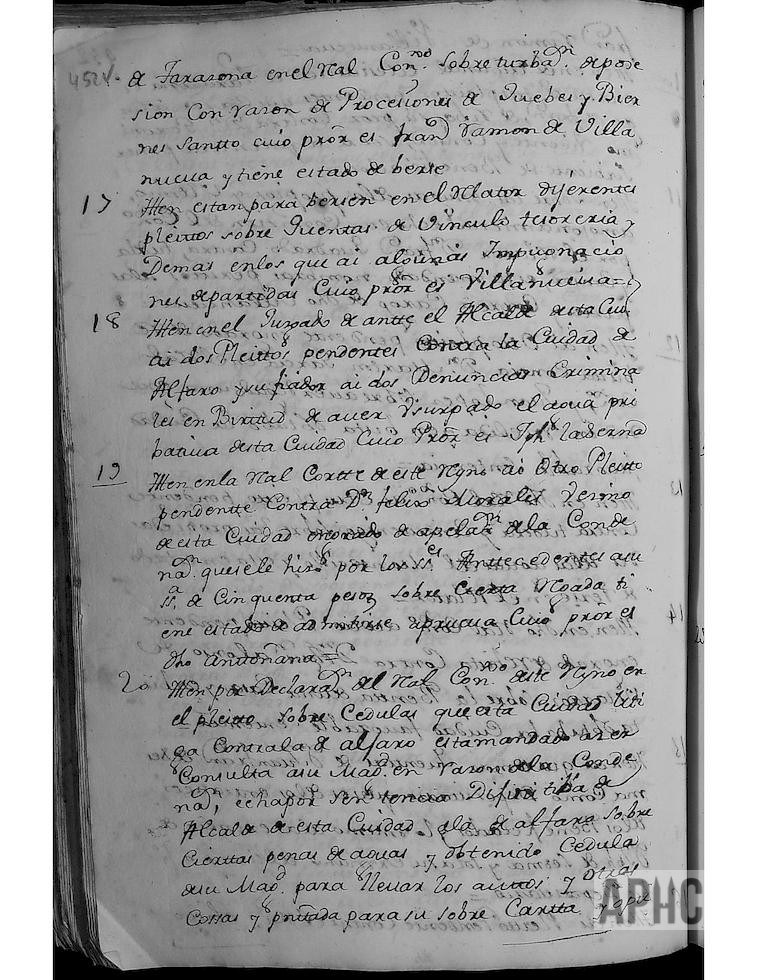 452v.
de Tarazona en el Ral Con.º sobre turbaon. de pose
sion Con razon de Procesiones de Juebes y Bier
nes Santto cuio pror es fran.co Ramon de Villa
nueua y tiene estado de berse
17 Itten estan para bersen en el Relator diferentes
pleittos sobre Quentas de Vinculo tesoreria y
Demas en los que ai algunas Impugnacio
nes de partidas Cuio pror es Villanueua =
18 Itten en el Juzgado de antte el Alcalde desta Ciud.
ai dos Pleittos pendentes Contra la Ciudad de
Alfaro y su fiador ai dos Denuncias Crimina
les en Birttud de auer Vsurpado el agua pri
batiua desta Ciudad Cuio Pror es Jph
19 Itten en la Ral Cortte de este Reyno ai Otro Pleitto
pendentte Contra D.n felix Morales Vezino
de esta Ciudad en grado de apelaon. de la Conde
naon. que se le hizo por los SS.es Anttecedentes a su
ss.a de Cinquenta pesos sobre Cierta
ene estado de admitirse a prueua Cuio pror es
dho
20 Itten por Declaraon. del Ral Con.º deste Reyno en
el pleitto sobre Cedulas que esta Ciudad liti
ga Contra la de alfaro esta mandado azer
Consulta a su Magd. en razon de la Conde
naon, echa por Sentencia Difinitiba de
Alcalde de esta Ciudad a la de alfaro sobre
Cierttas penas de aguas y obtenido Cedula
de su Magd. para lleuar los auttos y Otras
Cossas y priuada para su sobre Cartta y
APHC